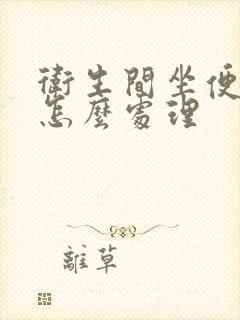 衛生間坐便
怎麼處理
離草